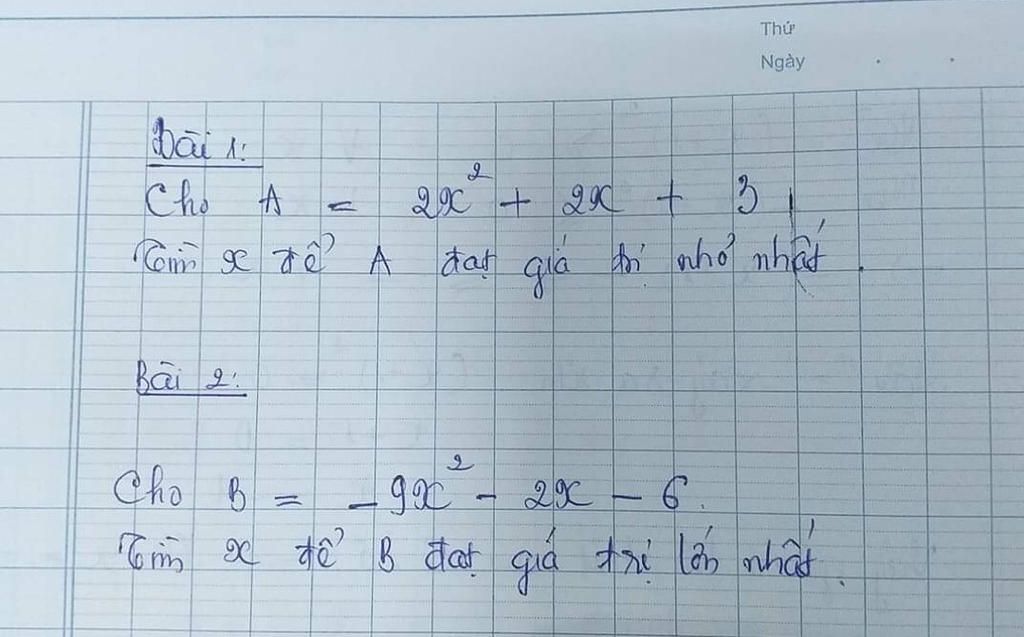 Thứ
Ngày
Bài 1:
Cho A = 2x² + 2x + 3,
Tìm x để A đạt giá trị nhỏ nhất.
Bài 2:
Cho B = -9x² - 2x - 6.
Tìm x để B đạt giá trị lớn nhất.